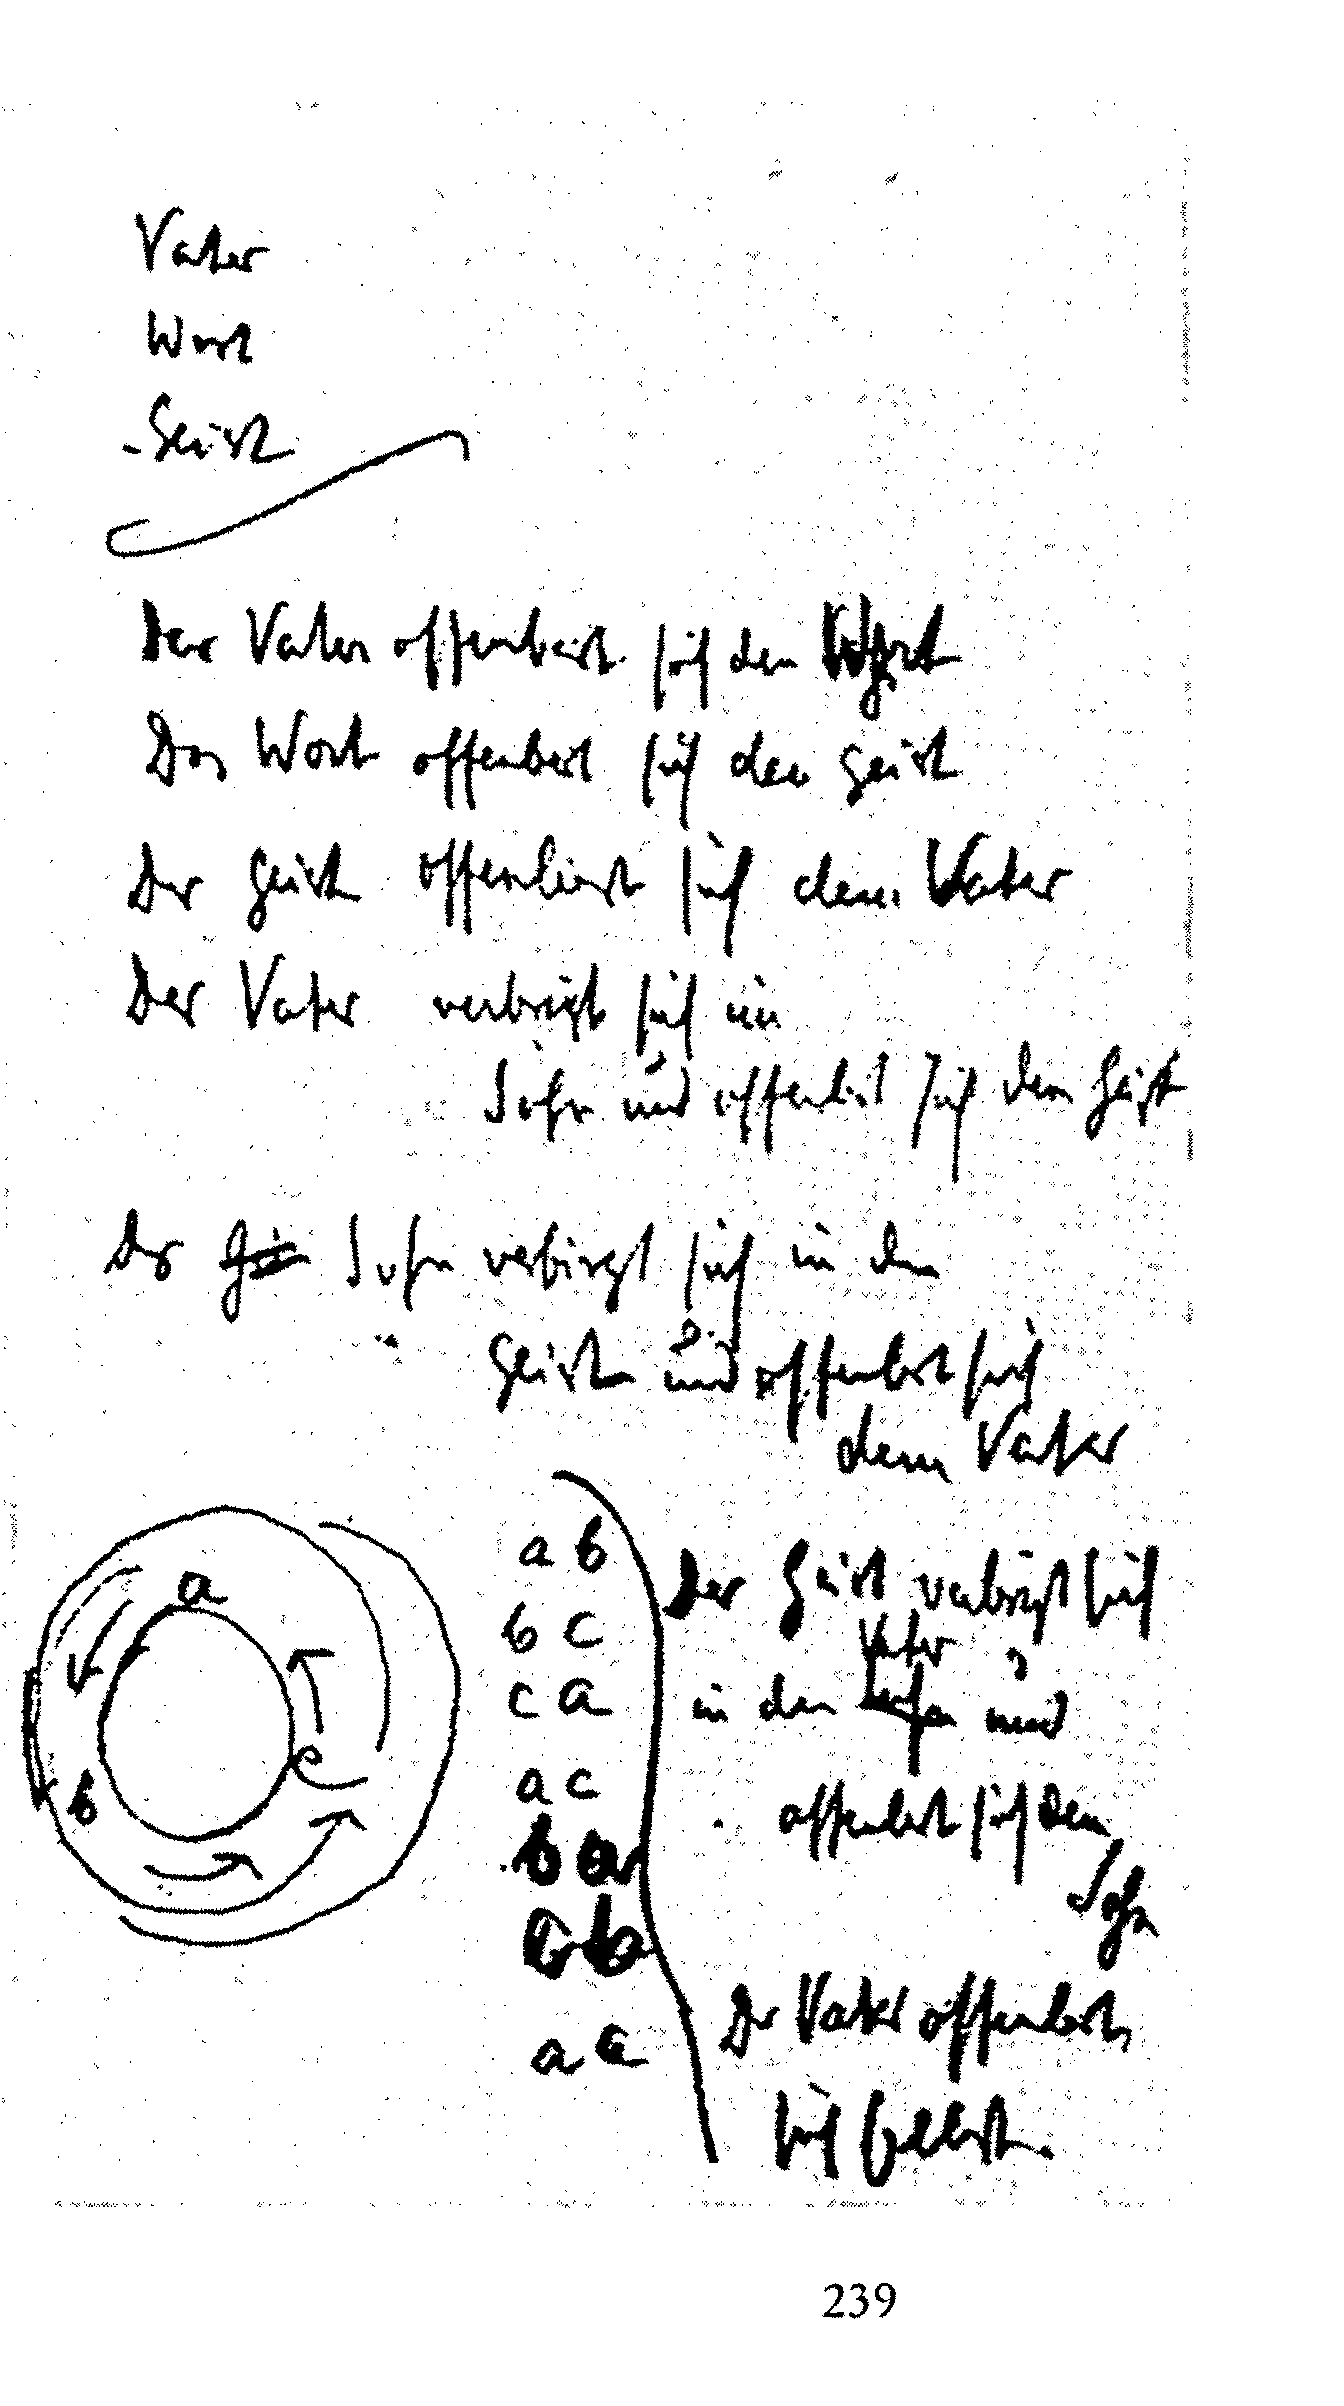 Vater
Wort
Geist
Der Vater offenbart sich dem Wort
Das Wort offenbart sich dem Geist
Der Geist offenbart sich dem Vater
Der Vater verbirgt sich im
Sohn und offenbart sich dem Geist
Der Sohn verbirgt sich in dem
Geist und offenbart sich
dem Vater
a
b
c
a b
b c
c a
a c
b a
c b
a a
Der Geist verbirgt sich
Vater
in dem und
offenbart sich dem
Sohn
Der Vater offenbart
sich selbst.
239